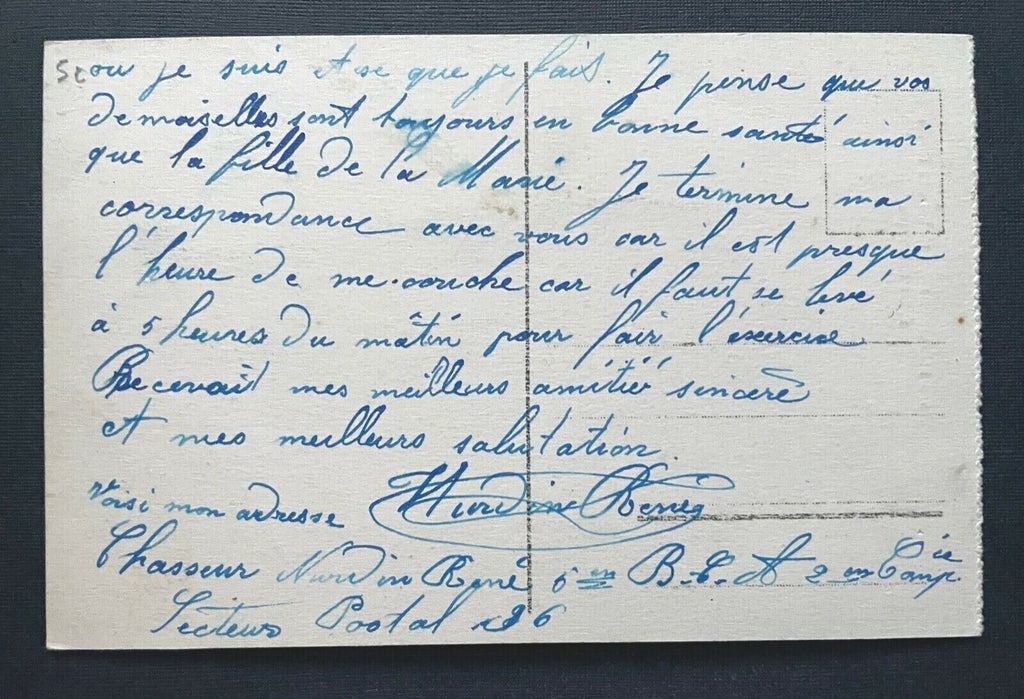 ou je suis et se que je fais. Je pense que vos
demoiselles sont toujours en bonne santé ainsi
que la fille de la Marie. Je termine ma
correspondance avec vous car il est presque
l'heure de me couche car il faut se levé
à 5 heures du mâtin pour fair l'éxercise
Recevait mes meilleurs amitié sincère
et mes meilleurs salutation.
Voisi mon adresse Nurdin René
Chasseur Nurdin René 6 em B.C.A 2 em Comp ie
Secteur Postal